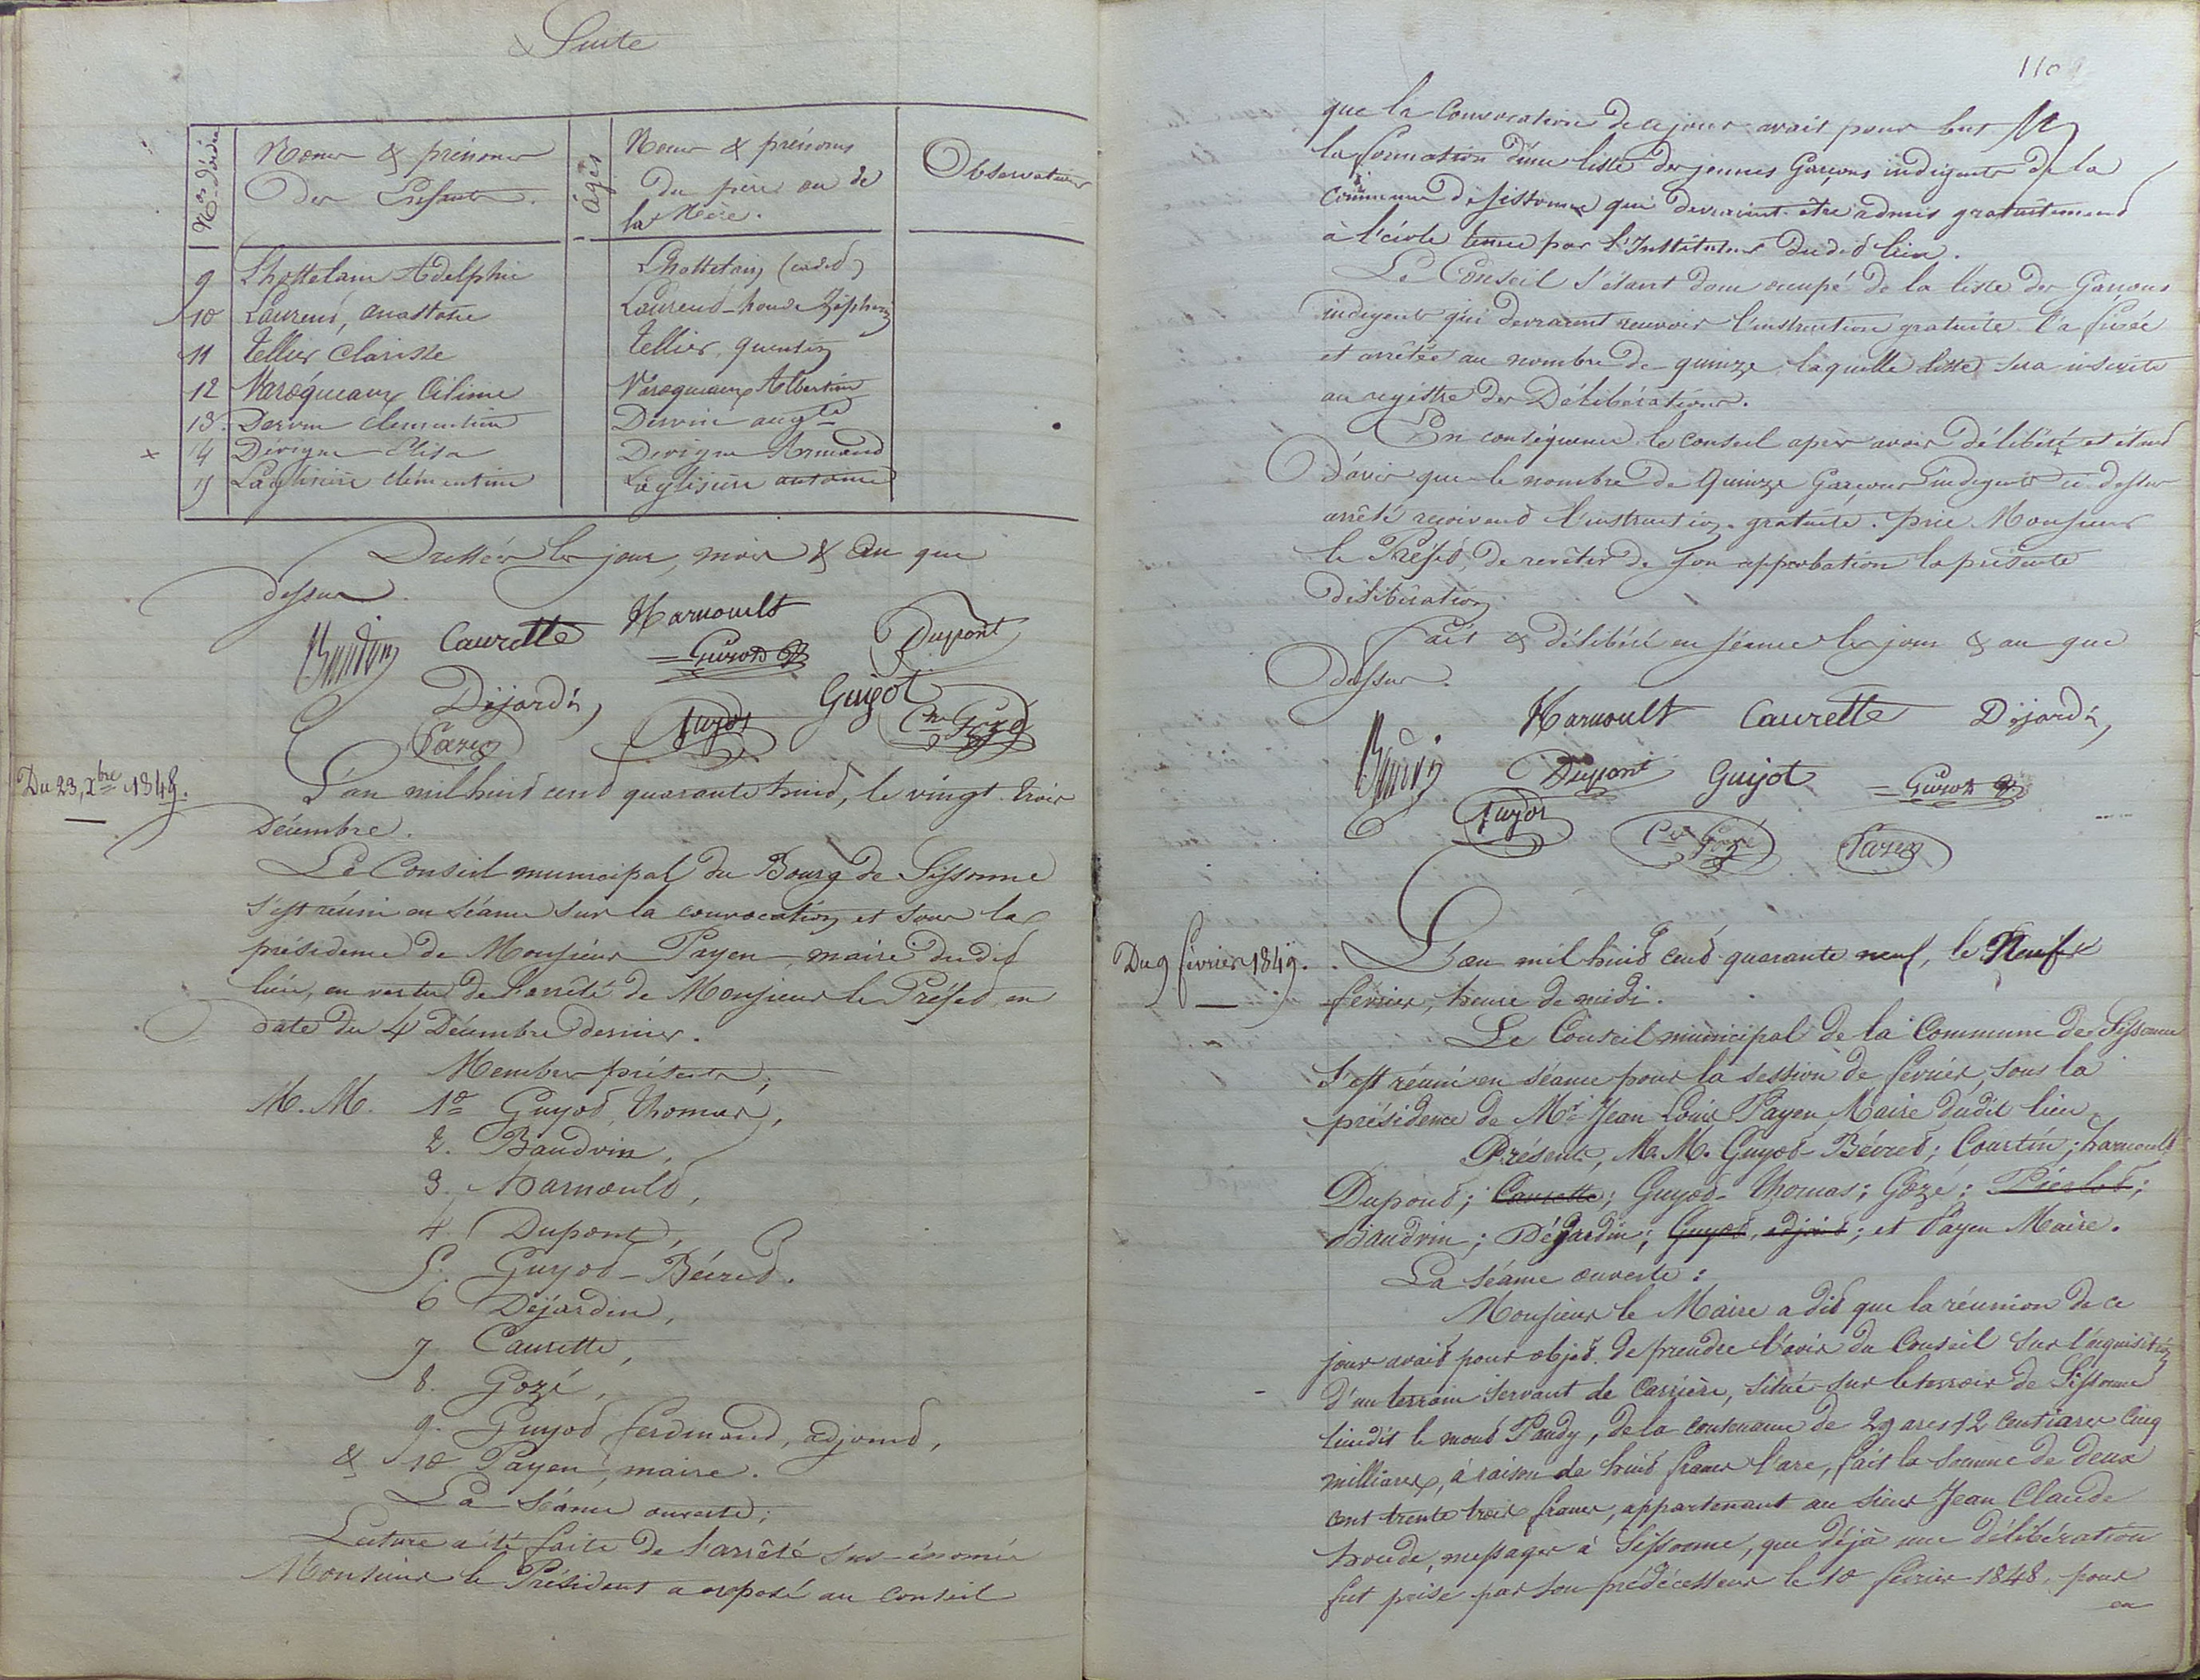 Suite
Nos d'ordre
Noms & prénoms
des Enfants.
âges
Noms & prénoms
du père ou de
la Mère.
Observations
9 Lhottelain Adelphie Lhottelain (cadet)
10 Laurent, anastasie Laurent-houde Zéphir
11 Tellier Clarisse Tellier, quentin
12 Varoqueaux Céline Varoqueaux Albertin
13. Dervin clémentine Dervin augte
14 Dévigne Elisa Dévigne Armand
15 Laglisière clémentine Laglisière antoine
Dressée les jour, mois & an que
dessus.
Baudvin Caurette Harnoult
Guyot Dupont
Déjardin Guyot
Payen Guyot Gozé
Du 23, Xbre 1848.
L'an mil huit cent quarante huit, le vingt-trois
Décembre.
Le Conseil municipal du Bourg de Sissonne
s'est réuni en séance sur la convocation et sous la
présidence de Monsieur Payen, maire dudit
lieu, en vertu de l'arrêté de Monsieur le Préfet en
date du 4 Décembre dernier.
Membres présents;
M. M. 1o Guyot Thomas,
2. Baudvin,
3. harnoult,
4. Dupont,
5. Guyot-Béuret.
6 Déjardin,
7. Caurette,
8. Gozé,
9. Guyot ferdinand, adjoint,
& 10 Payen, maire.
La Séance ouverte;
Lecture a été faite de l'arrêté sus-énoncé
Monsieur le Président a exposé au conseil
110
que la convocation de ce jour avait pour but
la formation d'une liste des jeunes Garçons indigents de la
commune de sissonne qui devraient être admis gratuitement
à l'école tenue par l'Instituteur dudit lieu.
Le Conseil s'étant donc occupé de la liste des Garçons
indigents qui devraient recevoir l'instruction gratuite l'a fixée
et arrêtée au nombre de quinze, laquelle liste sera inscrite
au registre des Délibérations.
En conséquence le conseil après avoir délibéré et étant
d'avis que le nombre de quinze Garçons indigents ci-dessus
arrêté reçoivent l'instruction gratuite. prie Monsieur
le Préfet, de revêtir de son approbation la présente
délibération
Fait & délibéré en séance les jour & an que
dessus.
Harnoult Caurette Déjardin
Baudvin Dupont Guyot Guyot
Guyot Gozé Payen
Du 9 février 1849.
L'an mil huit cent quarante neuf, le Neuf
février, heure de midi.
Le Conseil municipal de la Commune de Sissonne
s'est réuni en séance pour la session de février, sous la
présidence de Mr Jean Louis Payen, Maire dudit lieu
Présents, M. M. Guyot-Béuret; Courtin; harnoult
Dupont; Caurette; Guyot-Thomas; Gozé; Pierlot;
Baudvin; Déjardin; Guyot, adjoint; et Payen Maire.
La séance ouverte:
Monsieur le Maire a dit que la réunion de ce
jour avait pour objet de prendre l'avis du Conseil sur l'acquisition
d'un terrain servant de Carrière, situé sur le terroir de Sissonne
lieudit le mont Pandy, de la contenance de 29 ares 12 centiares cinq
milliares, à raison de huit francs l'are, fait la somme de deux
cent trente trois francs, appartenant au sieur Jean Claude
houde, messager à Sissonne, que déjà une délibération
fut prise par son prédécesseur le 10 février 1848, pour
en